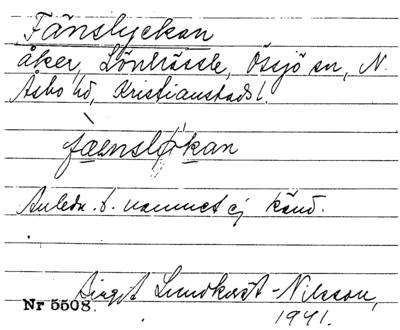 Fänslyckan
åker, Lönhässle, Össjö sn, N.
Åsbo hd, Kristianstads l.
fàensløkan
Anledn. t. namnet ej känd.
Birgit Lundkvist-Nilsson,
Nr 5508.
1941.